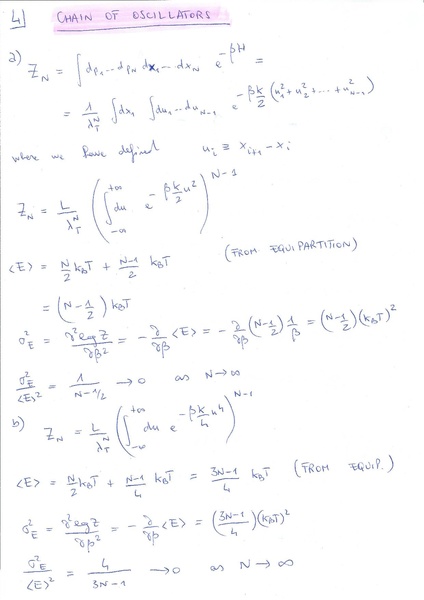 4] CHAIN OF OSCILLATORS
a) Z_N = ∫ dp_1 ... dp_N dx_1 ... dx_N e^{-βH} =
= 1/λ_T^N ∫ dx_1 ∫ du_1 ... du_{N-1} e^{-β k/2 (u_1^2 + u_2^2 + ... + u_{N-1}^2)}
where we have defined u_i ≡ x_{i+1} - x_i
Z_N = L/λ_T^N ( ∫_{-∞}^{+∞} du e^{-β k/2 u^2} )^{N-1}
⟨E⟩ = N/2 k_B T + N-1/2 k_B T (FROM EQUIPARTITION)
= (N - 1/2) k_B T
σ_E^2 = ∂^2 log Z/∂β^2 = - ∂/∂β ⟨E⟩ = - ∂/∂β (N - 1/2) 1/β = (N - 1/2) (k_B T)^2
σ_E^2/⟨E⟩^2 = 1/N - 1/2 → 0 as N → ∞
b) Z_N = L/λ_T^N ( ∫_{-∞}^{+∞} du e^{-β k/4 u^4} )^{N-1}
⟨E⟩ = N/2 k_B T + N-1/4 k_B T = 3N-1/4 k_B T (FROM EQUIP.)
σ_E^2 = ∂^2 log Z/∂β^2 = - ∂/∂β ⟨E⟩ = (3N-1/4) (k_B T)^2
σ_E^2/⟨E⟩^2 = 4/3N-1 → 0 as N → ∞